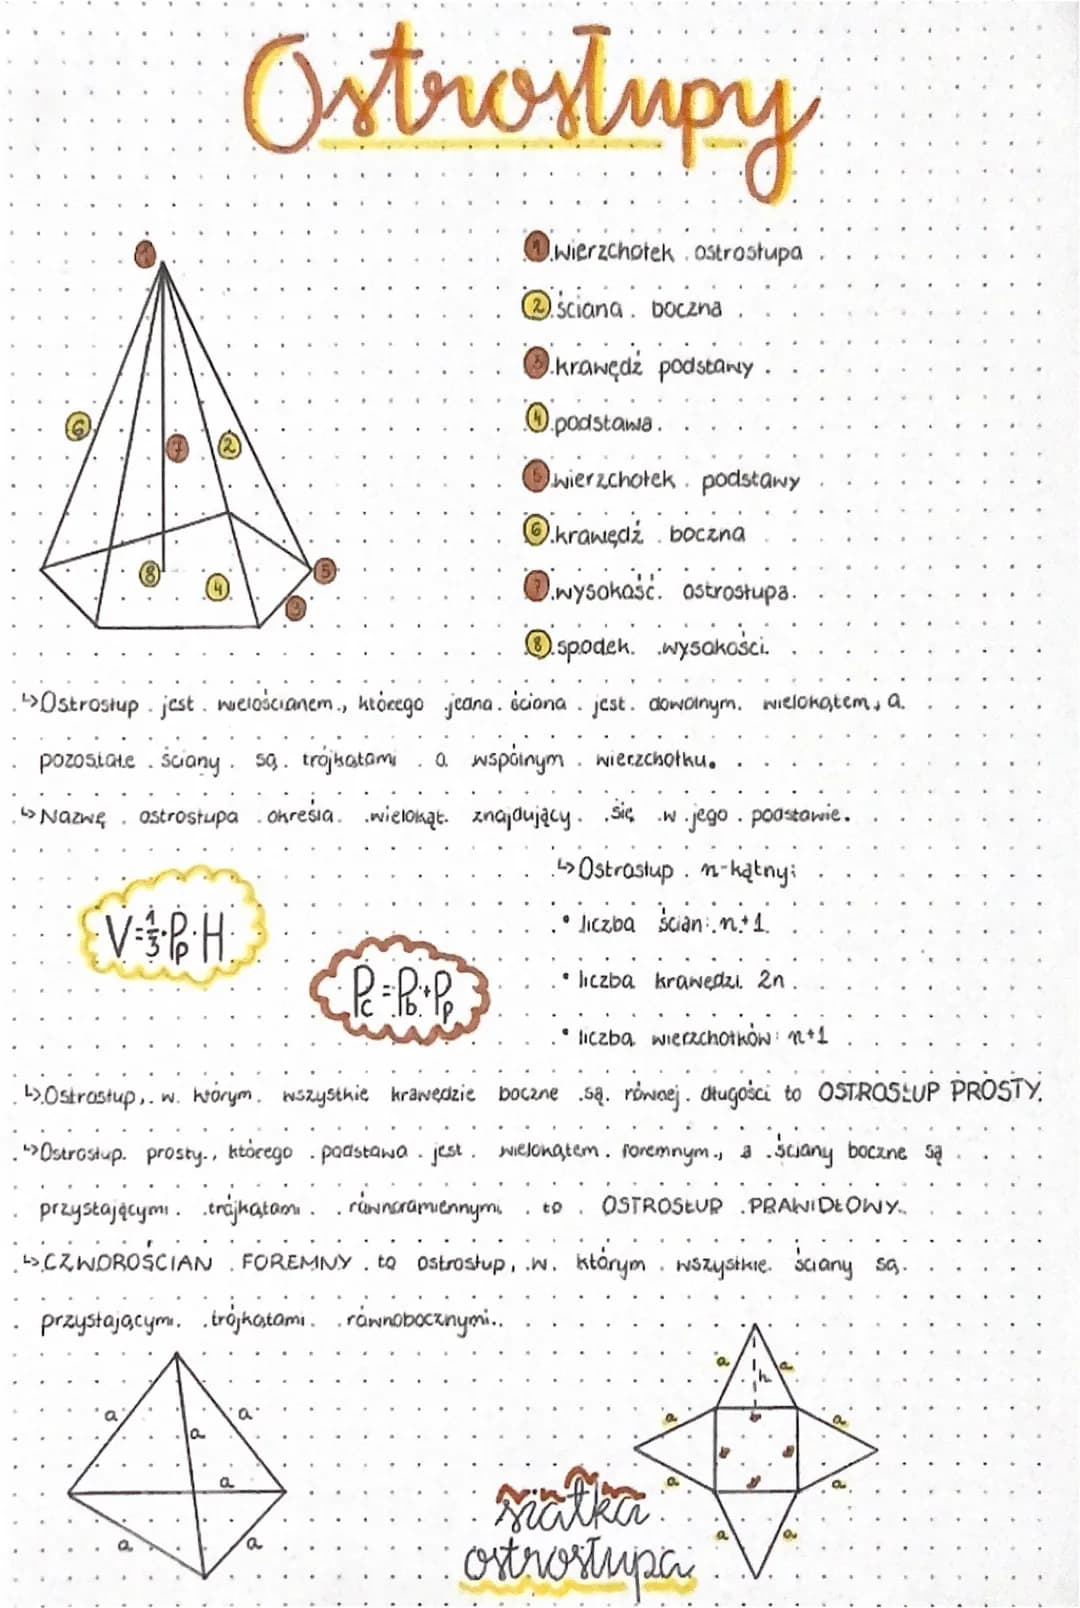 Ostrosłupy
1
6
7
2
8
4
5
3
1.wierzchołek ostrosłupa
2.ściana boczna
3.krawędź podstawy
4.podstawa
5.wierzchołek podstawy
6.krawędź boczna
7.wysokość ostrosłupa
8.spodek wysokości
↳Ostrosłup jest wielościanem, którego jedna ściana jest dowolnym wielokątem, a
pozostałe ściany są trójkątami o wspólnym wierzchołku.
↳Nazwę ostrosłupa określa wielokąt znajdujący się w jego podstawie.
V=⅓·Pp·H
Pc=Pb+Pp
↳Ostrosłup n-kątny:
• liczba ścian: n+1
• liczba krawędzi 2n
• liczba wierzchołków: n+1
↳Ostrosłup, w którym wszystkie krawędzie boczne są równej długości to OSTROSŁUP PROSTY.
↳Ostrosłup prosty, którego podstawa jest wielokątem foremnym, a ściany boczne są
przystającymi trójkątami równoramiennymi to OSTROSŁUP PRAWIDŁOWY.
↳CZWOROŚCIAN FOREMNY to ostrosłup, w którym wszystkie ściany są
przystającymi trójkątami równobocznymi.
a
a
a
a
a
a
a
a
h
a
a
b
b
b
a
a
b
a
a
siatka
ostrosłupa